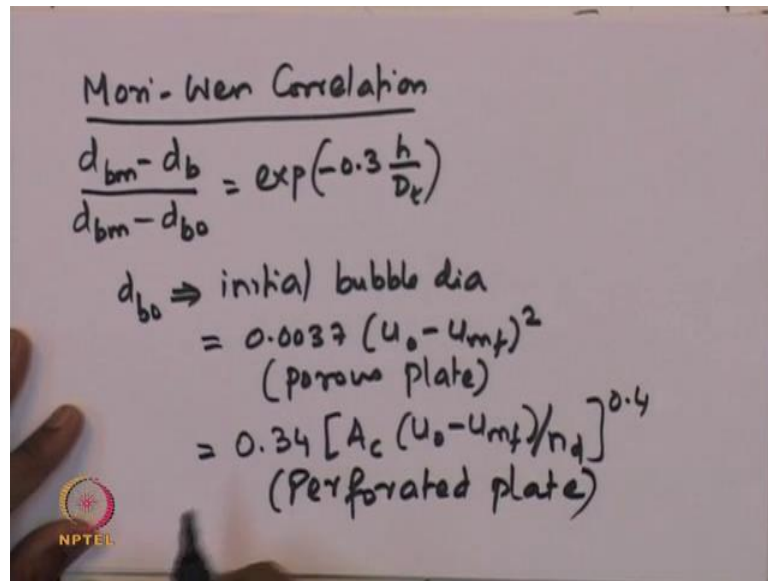 Mori-Wen Correlation
(d_bm - d_b) / (d_bm - d_bo) = exp(-0.3 h/D_t)
d_bo ⇒ initial bubble dia
= 0.0037 (u_o - u_mf)^2
(porous plate)
= 0.34 [A_c (u_o - u_mf)/n_d]^0.4
(Perforated plate)
NPTEL